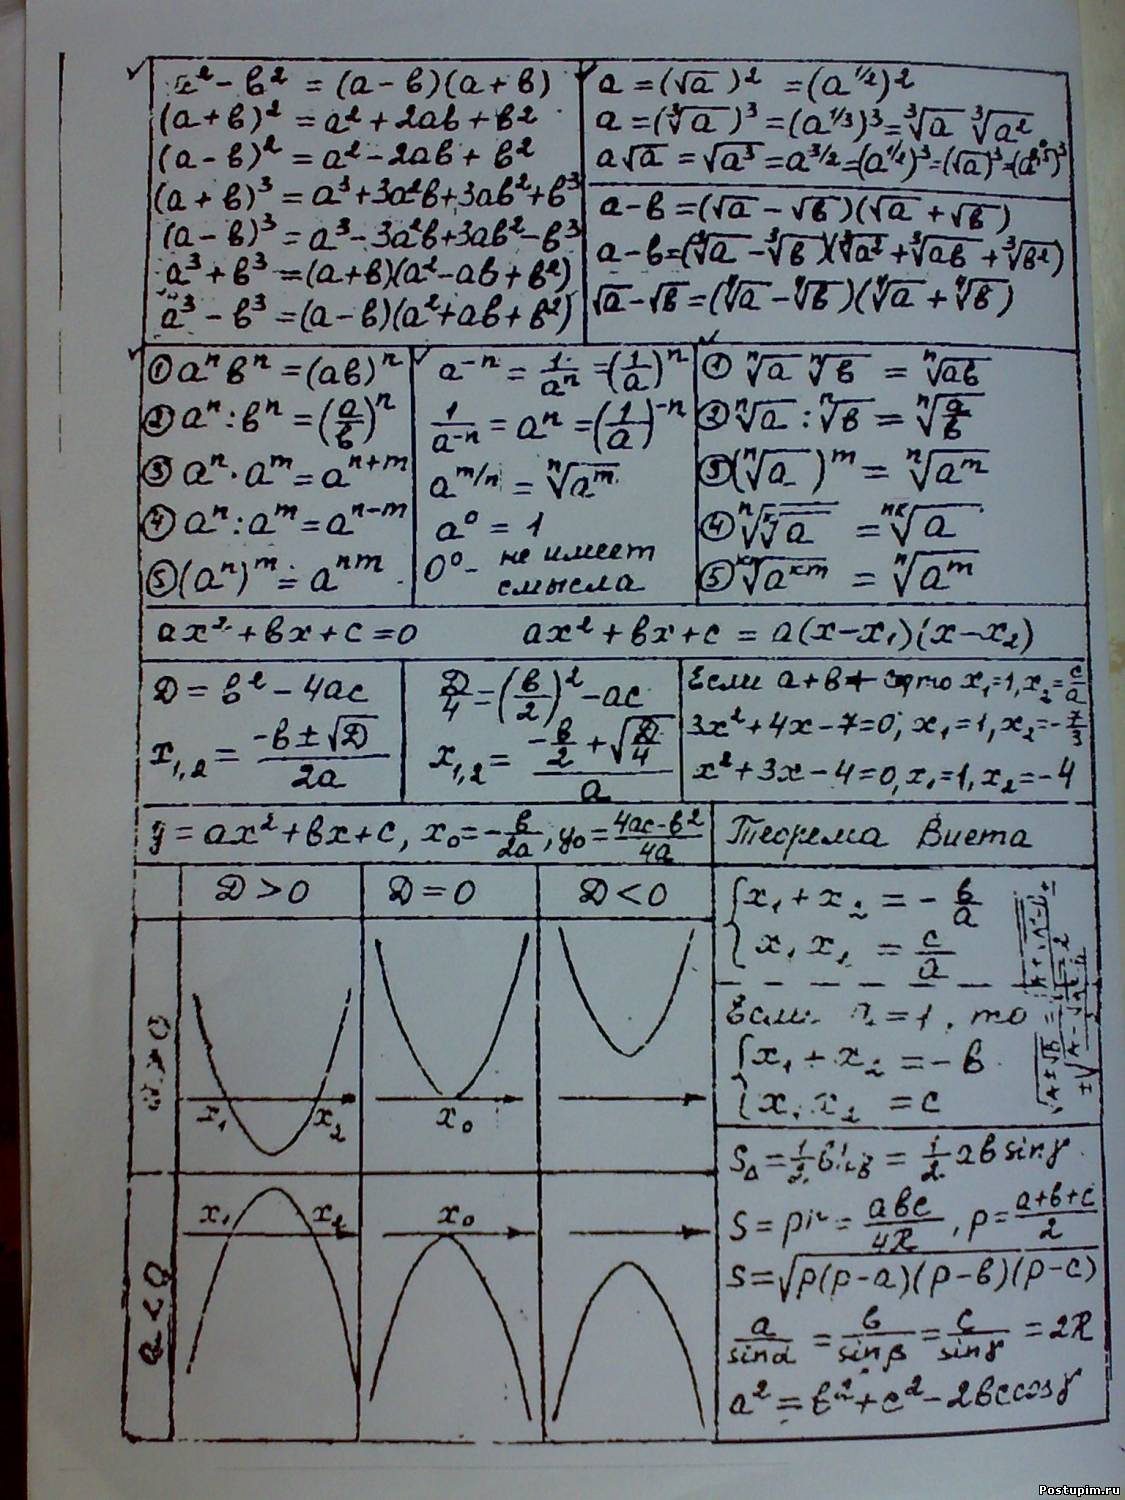 a² - в² = (a - в)(a + в)
(a + в)² = a² + 2aв + в²
(a - в)² = a² - 2aв + в²
(a + в)³ = a³ + 3a²в + 3aв² + в³
(a - в)³ = a³ - 3a²в + 3aв² - в³
a³ + в³ = (a + в)(a² - aв + в²)
a³ - в³ = (a - в)(a² + aв + в²)
a = (√a)² = (a^1/2)²
a = (∛a)³ = (a^1/3)³ = ∛a ∛a²
a√a = √a³ = a^3/2 = (a^1/2)³ = (√a)³ = (a^0,5)³
a - в = (√a - √в)(√a + √в)
a - в = (∛a - ∛в)(∛a² + ∛aв + ∛в²)
√a - √в = (∜a - ∜в)(∜a + ∜в)
① aⁿ вⁿ = (aв)ⁿ
② aⁿ : вⁿ = (a/в)ⁿ
③ aⁿ · a^m = a^n+m
④ aⁿ : a^m = a^n-m
⑤ (aⁿ)^m = a^nm
a^-n = 1/aⁿ = (1/a)ⁿ
1/a^-n = aⁿ = (1/a)^-n
a^m/n = ⁿ√a^m
a⁰ = 1
0⁰ - не имеет
смысла
① ⁿ√a ⁿ√в = ⁿ√aв
② ⁿ√a : ⁿ√в = ⁿ√a/в
③ (ⁿ√a)^m = ⁿ√a^m
④ ⁿ√ᵏ√a = ⁿᵏ√a
⑤ ᵏⁿ√a^кm = ⁿ√a^m
ax² + вx + c = 0 ax² + вx + c = a(x - x₁)(x - x₂)
D = в² - 4ac
x₁,₂ = (-в ± √D)/2a
D/4 = (в/2)² - ac
x₁,₂ = (-в/2 + √D/4)/a
Если a + в + c, то x₁ = 1, x₂ = c/a
3x² + 4x - 7 = 0, x₁ = 1, x₂ = -7/3
x² + 3x - 4 = 0, x₁ = 1, x₂ = -4
y = ax² + вx + c, x₀ = -в/2a, y₀ = (4ac - в²)/4a
Теорема Виета
D > 0 D = 0 D < 0
a > 0
x₁ x₂ x₀
a < 0
x₁ x₂ x₀
x₁ + x₂ = -в/a
x₁ x₂ = c/a
Если a = 1, то
x₁ + x₂ = -в
x₁ x₂ = c
S△ = 1/2 = 1/2 aв sin γ
S = pr = aвc/4R, p = (a + в + c)/2
S = √p(p - a)(p - в)(p - c)
a/sin α = в/sin β = c/sin γ = 2R
a² = в² + c² - 2вc cos γ
Postupim.ru